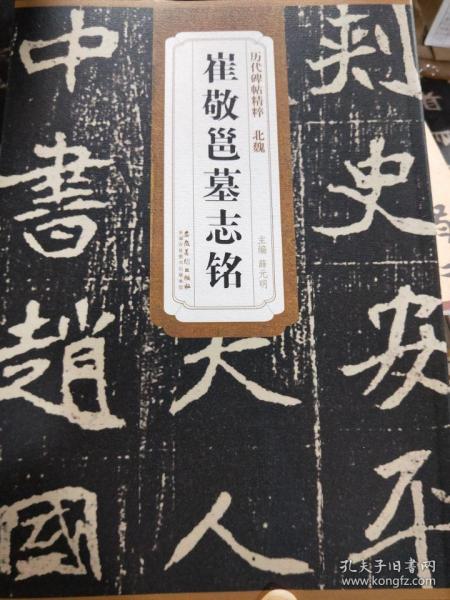 历代碑帖精粹 北魏
崔敬邕墓志铭
主编 薛元明
安徽美术出版社
刺史安平
大人
中書趙國
孔夫子旧书网
www.kongfz.com